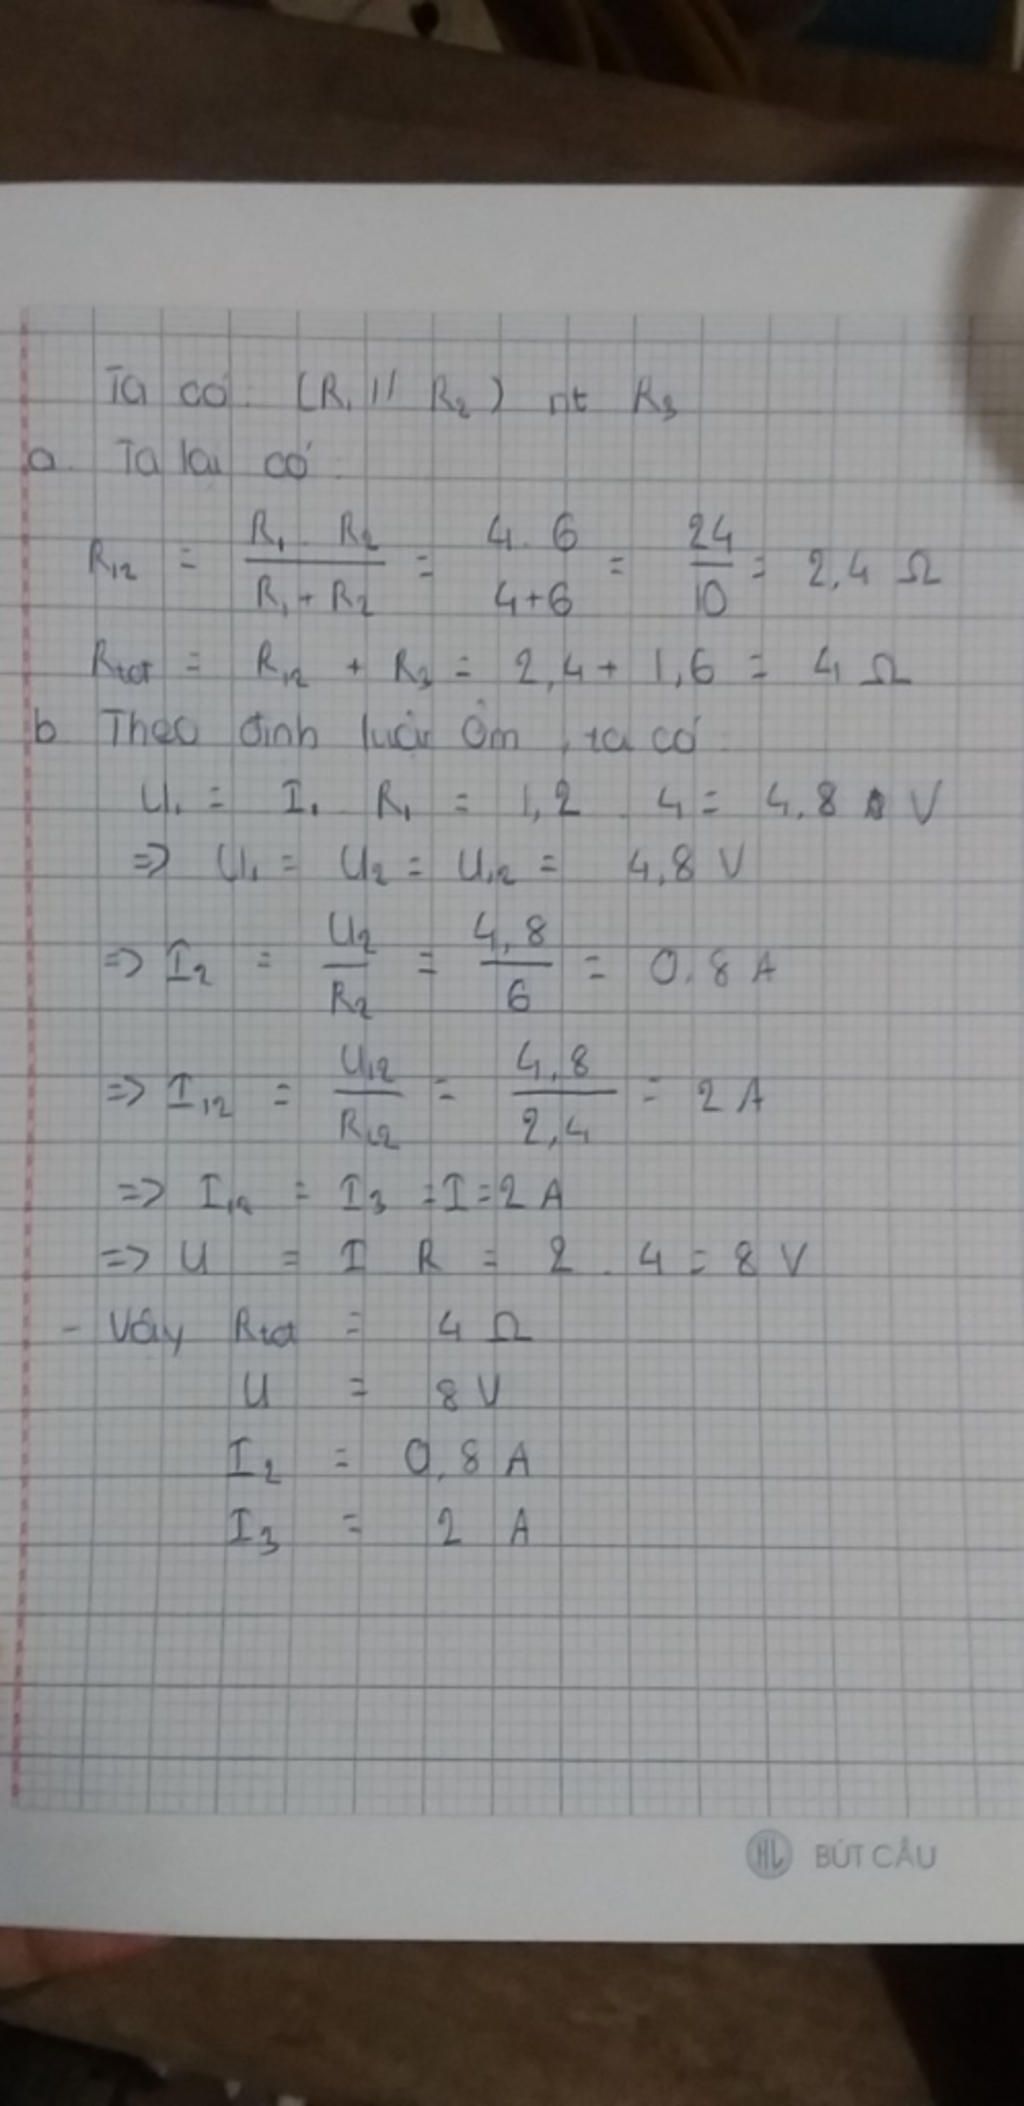 Ta có: (R₁ // R₂) nt R₃
a. Ta lại có:
R₁₂ = \frac{R₁ . R₂}{R₁ + R₂} = \frac{4 . 6}{4+6} = \frac{24}{10} = 2,4 Ω
Rtđ = R₁₂ + R₃ = 2,4 + 1,6 = 4 Ω
b Theo định luật Ôm, ta có
U₁ = I₁ . R₁ = 1,2 . 4 = 4,8 V
=> U₁ = U₂ = U₁₂ = 4,8 V
=> I₂ = \frac{U₂}{R₂} = \frac{4,8}{6} = 0,8 A
=> I₁₂ = \frac{U₁₂}{R₁₂} = \frac{4,8}{2,4} = 2 A
=> I₁₂ = I₃ = I = 2 A
=> U = I . R = 2 . 4 = 8 V
- Vậy Rtđ = 4 Ω
U = 8 V
I₂ = 0,8 A
I₃ = 2 A
HL BÚT CÂU